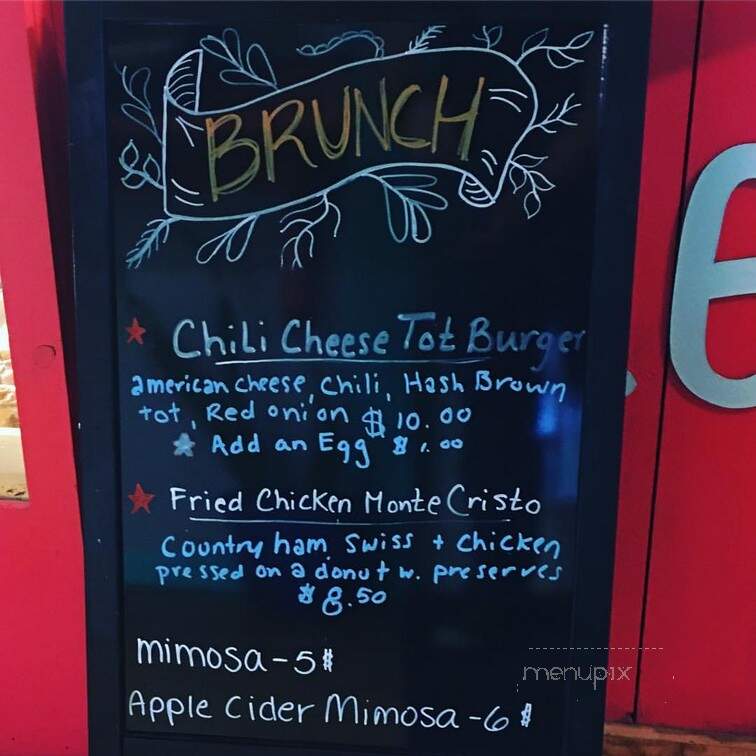 BRUNCH
Chili Cheese Tot Burger
american cheese, chili, Hash Brown
tot, Red onion $10.00
Add an Egg $1.00
Fried Chicken Monte Cristo
Country ham, Swiss + chicken
pressed on a donut w. preserves
$8.50
mimosa - 5$
Apple Cider Mimosa - 6$
e
menupix